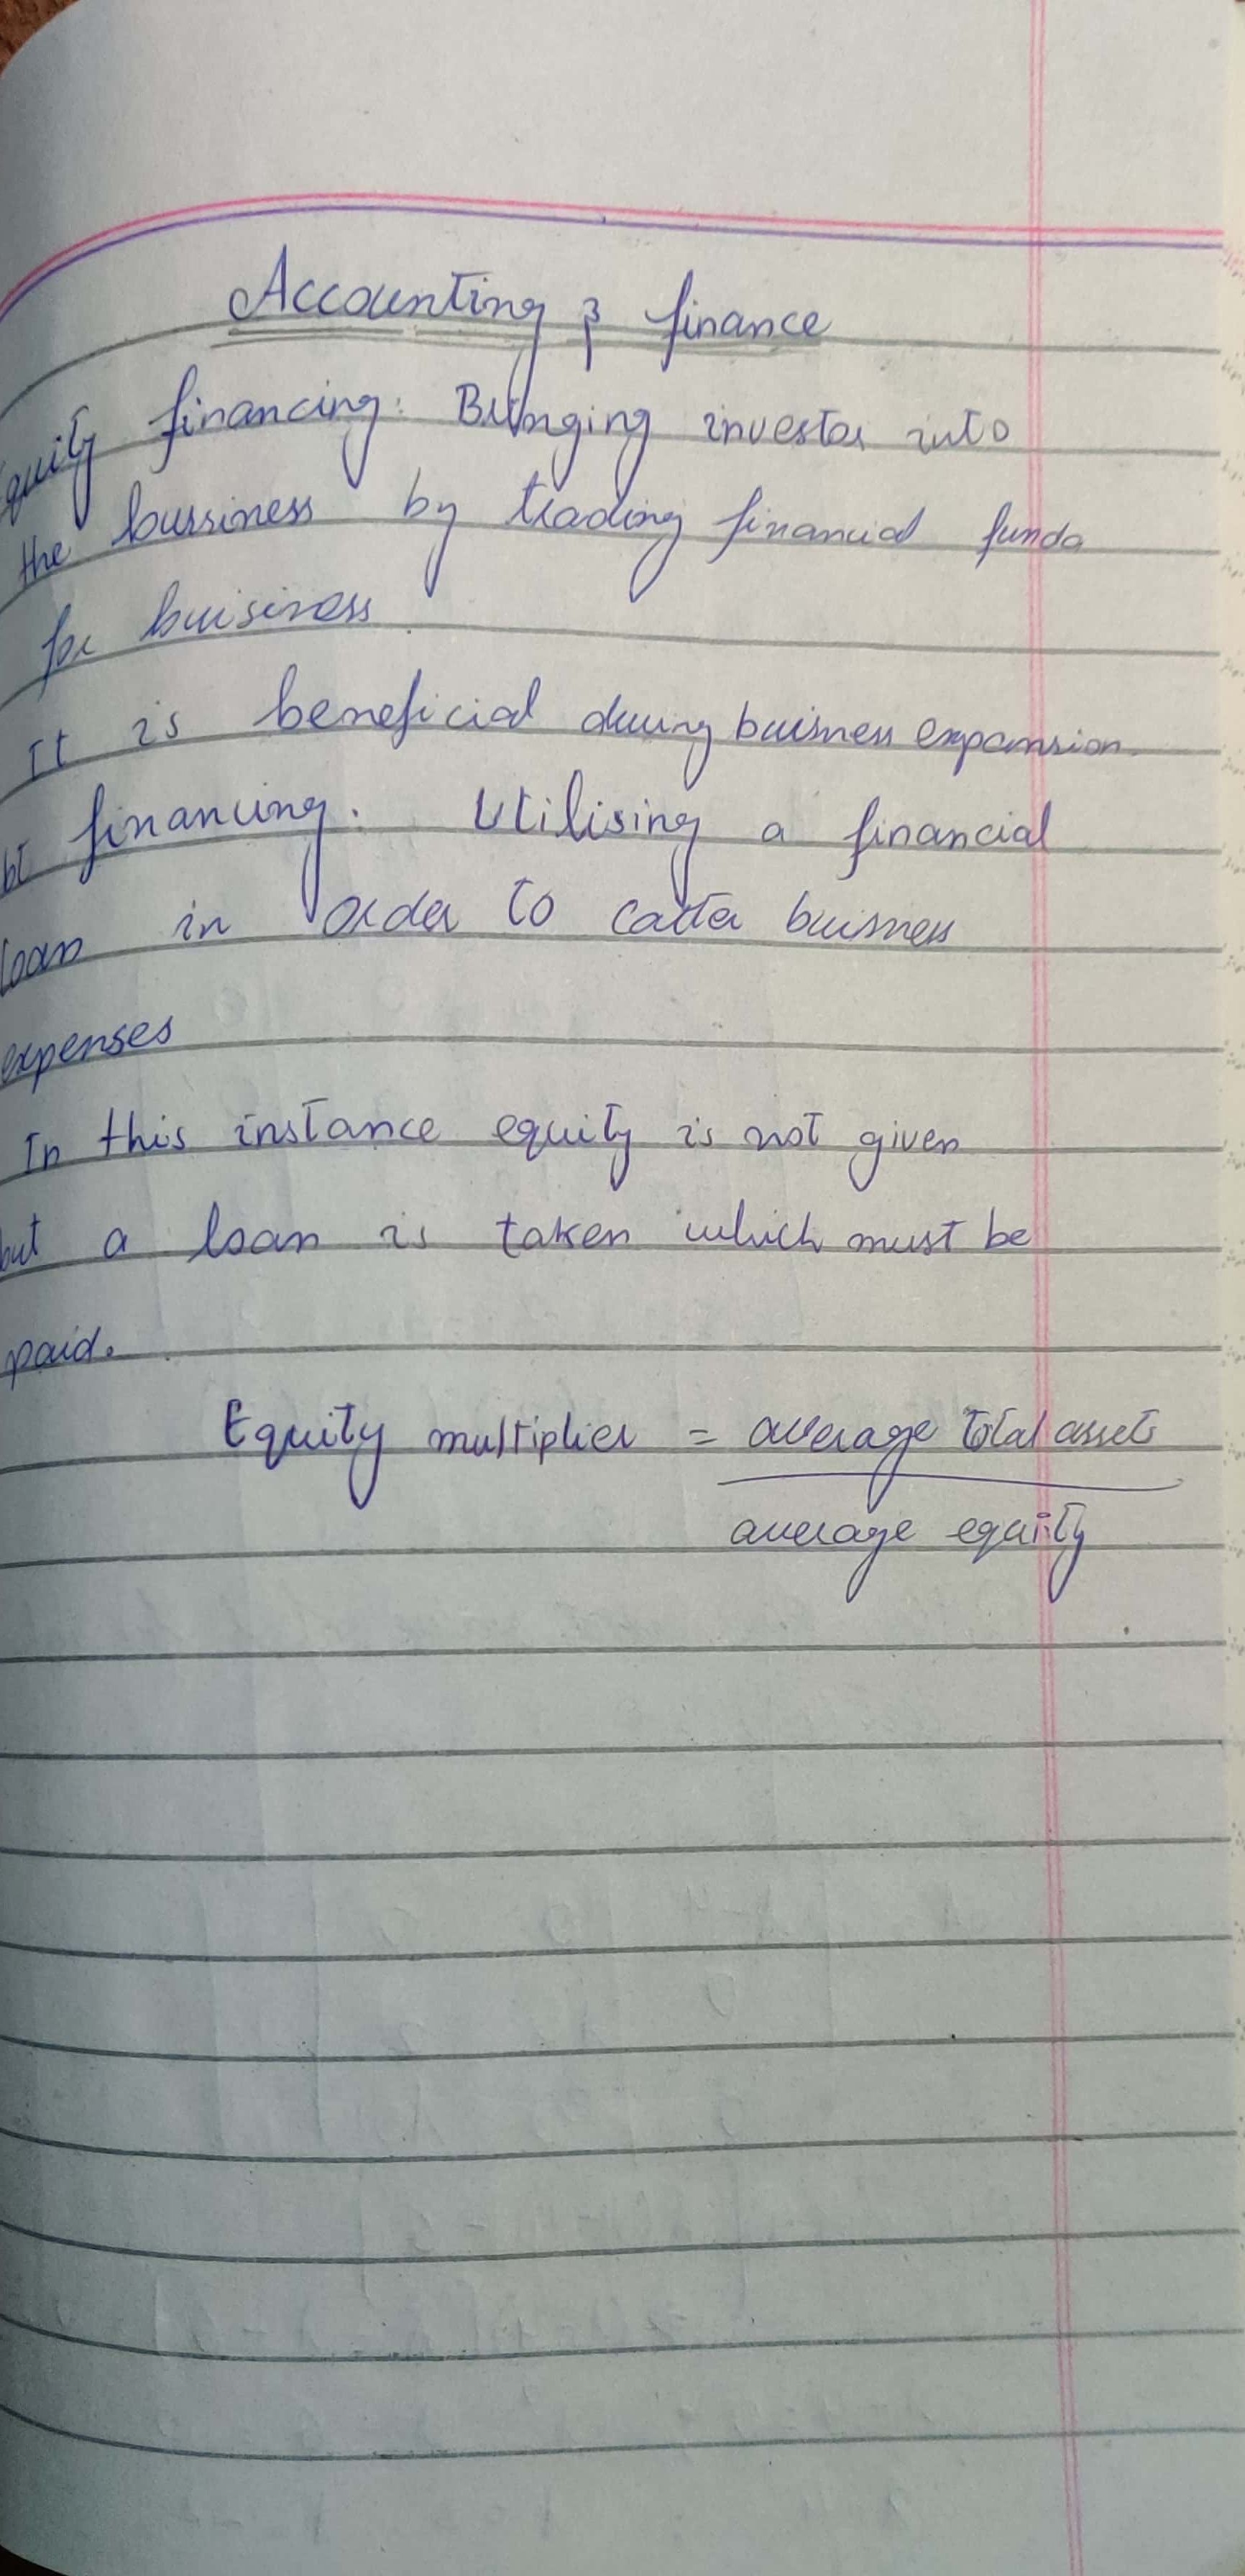 Accounting & finance
quity financing: Bringing investor into
the bussiness by trading financial funds
for buisiness
It is beneficial during buisness expansion.
bt financing: Utilising a financial
loan in order to catter buisness
expenses
In this instance equity is not given
but a loan is taken which must be
paid.
Equity multiplier = average total assets
average equity